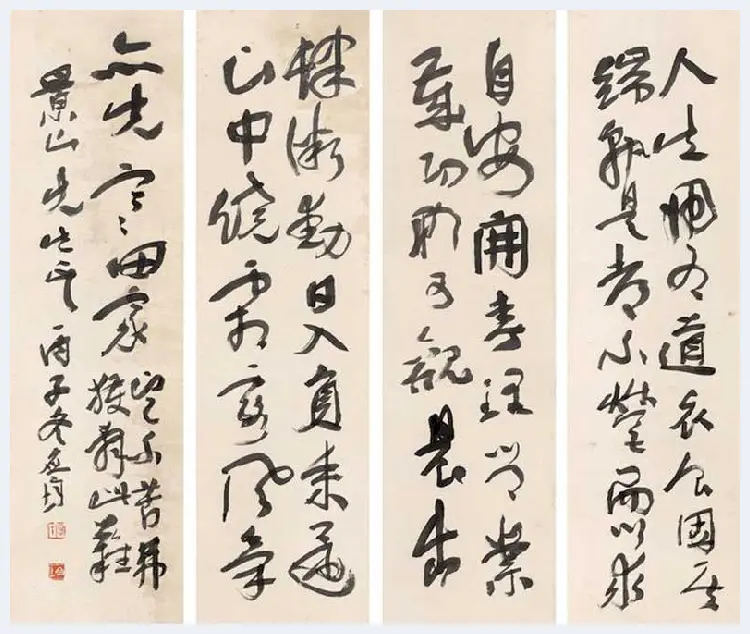 人生歸有道衣食固其
端孰是都不營而以求
自安開春理常業
歲功聊可觀晨出
肆微勤日入負耒還
山中饒霜露風氣
亦先寒田家豈不苦弗
獲辭此難
景山先生正 丙子冬